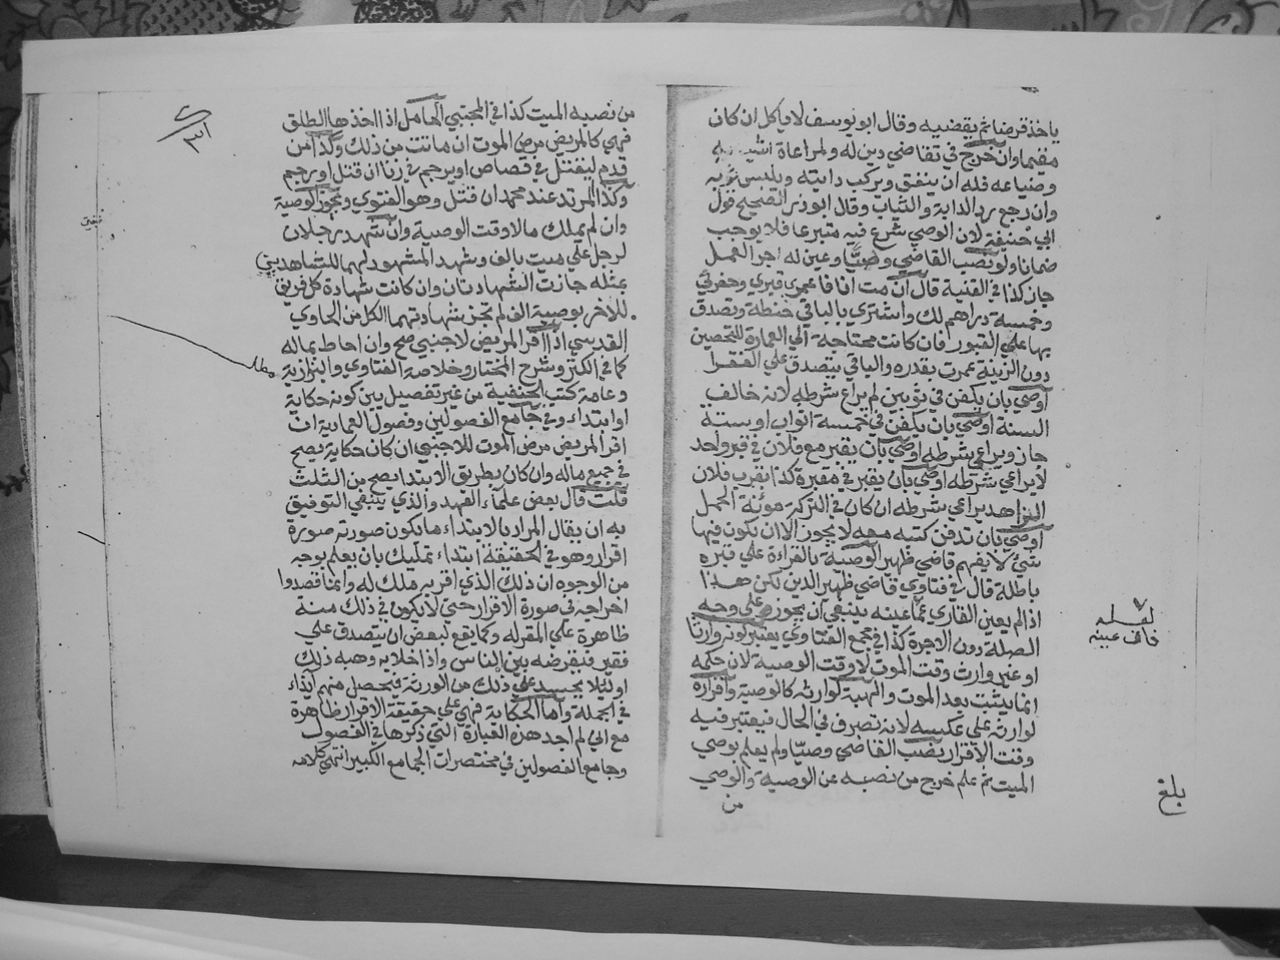 ياخذ قرضا ثم يقضيه وقال ابو يوسف لا ياكل ان كان
مقيما وان خرج في تقاضي دين له ولمراعاة
وضياعه فله ان ينفق ويركب دابته ويلبس ثوبه
وان رجع يرد الدابة والثياب وقال ابو ذر الصحيح قول
ابي حنيفة لان الوصي شرع فيه متبرعا فلا يوجب
ضمانا ولو نصب القاضي وصيا وعين له اجر العمل
جاز كذا في القنية قال ان مت انا فاعمروا قبري وحفرتي
وخمسة دراهم لك واشتري بالباقي حنطة وتصدق
بها علي القبور فان كانت محتاجة الي العمارة للتحصين
دون الزينة عمرت بقدره والباقي يتصدق علي الفقرا
اوصي بان يكفن في ثوبين لم يراع شرطه لانه خالف
السنة اوصي بان يكفن في خمسة اثواب او ستة
جاز ويراعي شرطه اوصي بان يقبر مع فلان في قبر واحد
لا يراعي شرطه اوصي بان يقبر في مقبرة كذا بقرب فلان
الزاهد يراعي شرطه ان كان في التركة مؤنة الحمل
اوصي بان تدفن كتبه معه لا يجوز الا ان يكون فيها
شئ لا يفهم قاضي ظهير الوصية بالقراءة علي قبره
باطلة قال في فتاوي قاضي ظهير الدين لكن هذا
اذا لم يعين القاري بما عينه ينبغي ان يجوز علي وجه
الصلة دون الاجرة كذا في مجمع الفتاوي يعتبر كونه وارثا
او غير وارث وقت الموت لا وقت الوصية لان حكمه
انما يثبت بعد الموت والهبة لوارثه كالوصية واقراره
لوارثه علي عكسه لانه تصرف في الحال فيعتبر فيه
وقت الاقرار نصب القاضي وصيا ولم يعلم بوصي
الميت ثم علم خرج من نصبه عن الوصية والوصي
من
لعله
خلاف عينه
بلغ
من نصبه الميت كذا في المجتبي الحامل اذا اخذها الطلق
فهي كالمريض مرض الموت ان ماتت من ذلك وكذا من
قدم ليقتل في قصاص او يرجم في زنا ان قتل او رجم
وكذا المرتد عند محمد ان قتل وهو الفتوي ويجوز الوصية
وان لم يملك مالا وقت الوصية وان شهد رجلان
لرجل علي ميت بالف وشهد المشهود لهما للشاهدين
بمثله جازت الشهادتان وان كانت شهادة كل فريق
للاخر بوصية الف لم تجز شهادتهما الكل من الحاوي
القدسي اذا اقر المريض لاجنبي صح وان احاط بماله
كما في الكنز وشرح المختار وخلاصة الفتاوي والبزازية
مطلب
وعامة كتب الحنفية من غير تفصيل بين كونه حكاية
او ابتداء وفي جامع الفصولين وفصول العمادية ان
اقر المريض مرض الموت للاجنبي ان كان حكاية يصح
في جميع ماله وان كان بطريق الابتدا يصح من الثلث
قلت قال بعض علماء العهد والذي ينبغي التوفيق
به ان يقال المراد بالابتداء ما يكون صورته صورة
اقرار وهو في الحقيقة ابتداء تمليك بان يعلم بوجه
من الوجوه ان ذلك الذي اقر به ملك له وانما قصدوا
اخراجه في صورة الاقرار حتي لا يكون في ذلك منة
ظاهرة علي المقر له وكما يقع لبعض ان يتصدق علي
فقير فيقرضه بين الناس واذا خلا به وهبه ذلك
او لئلا يحسد علي ذلك من الورثة فيحصل منهم ايذاء
في الجملة واما الحكاية فهي علي حقيقة الاقرار ظاهرة
مع اني لم اجد هذه العبارة التي ذكرها في الفصول
وجامع الفصولين في مختصرات الجامع الكبير انتهي كلامه